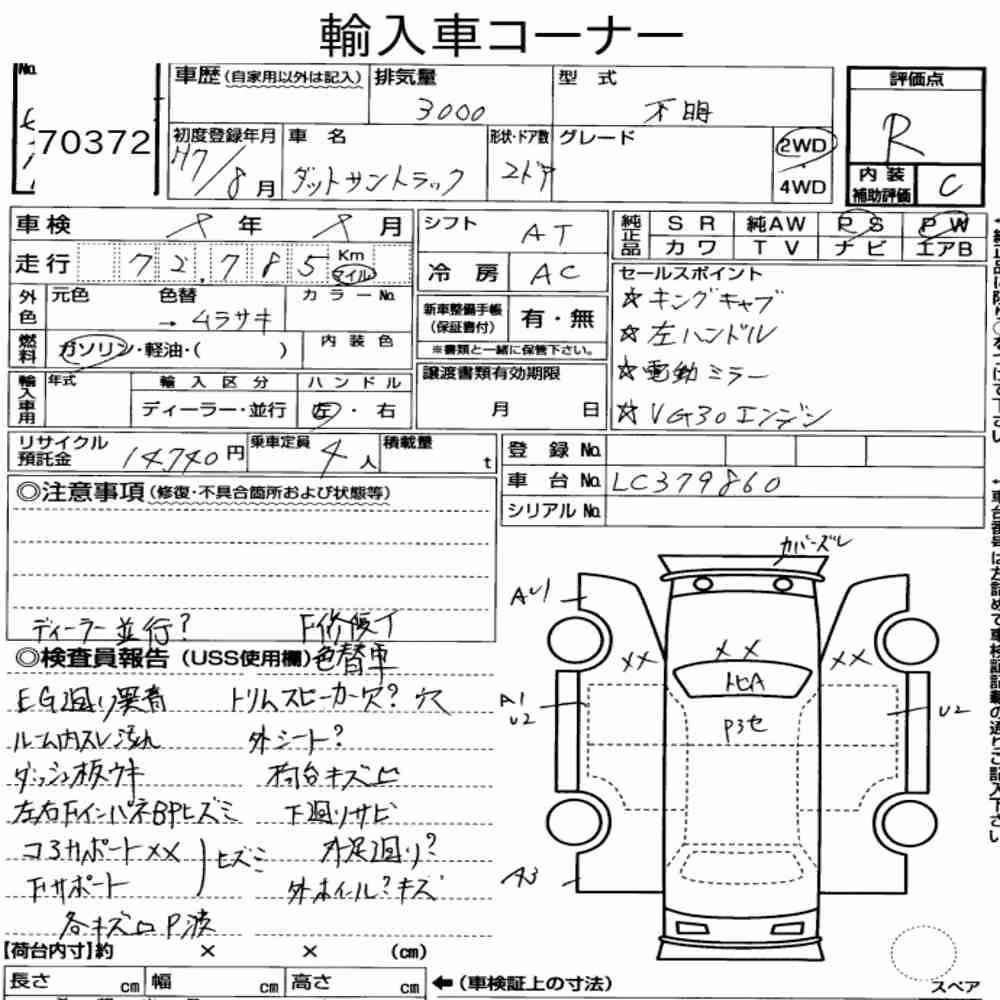 輸入車コーナー
No.
70372
車歴(自家用以外は記入)
排気量
3000
型 式
不明
評価点
R
初度登録年月
H7/8月
車 名
ダットサントラック
形状・ドア数
2ドア
グレード
2WD
4WD
内装補助評価
C
車検
年
月
シフト
AT
純正品
SR
純AW
PS
PW
カワ
TV
ナビ
エアB
走行
72,785
Km
マイル
冷房
AC
セールスポイント
☆キングキャブ
☆左ハンドル
☆電動ミラー
☆VG30エンジン
外色
元色
色替
カラーNo.
→ ムラサキ
新車整備手帳
(保証書付)
有・無
※書類と一緒に保管下さい。
燃料
ガソリン・軽油・( )
内装色
輸入車用
年式
輸入区分
ハンドル
ディーラー・並行
左・右
譲渡書類有効期限
月 日
リサイクル
預託金
14,740円
乗車定員
4人
積載量
t
登録No.
車台No.
LC379860
シリアルNo.
◎注意事項(修復・不具合箇所および状態等)
ディーラー並行?
◎検査員報告(USS使用欄)色替車
EG回り異音
トリムスピーカー穴?穴
ルーム内スレ汚れ
外シート?
ダッシュ板ウキ
荷台キズ凹
左右FインパネBPヒズミ
下回りサビ
コアサポートXX
ヒズミ
外足回り?
Fサポート
外ホイル?キズ
各キズ凹P波
カバーズレ
AU1
XX
XX
XX
トビA
P3セ
A1
U2
U2
A3
【荷台内寸】約 × × (cm)
長さ cm
幅 cm
高さ cm
←(車検証上の寸法)
スペア